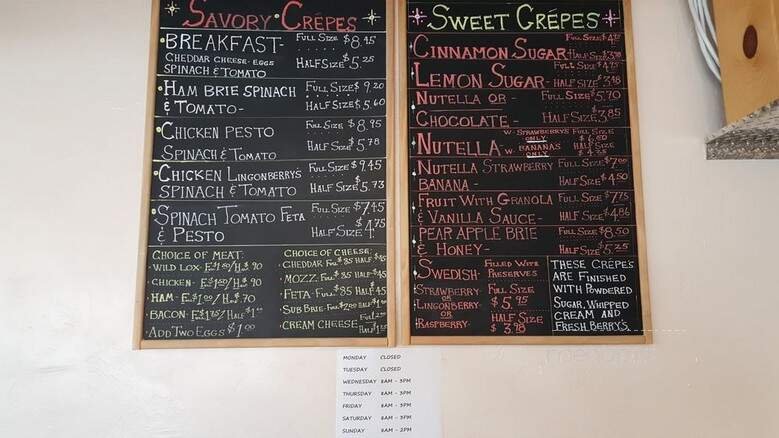 SAVORY CRÊPES
BREAKFAST- FULL SIZE $8.45
CHEDDAR CHEESE- EGGS HALF SIZE $5.25
SPINACH & TOMATO
HAM BRIE SPINACH FULL SIZE $9.20
& TOMATO- HALF SIZE $5.60
CHICKEN PESTO FULL SIZE $8.95
SPINACH & TOMATO HALF SIZE $5.78
CHICKEN LINGONBERRYS FULL SIZE $9.45
SPINACH & TOMATO HALF SIZE $5.73
SPINACH TOMATO FETA FULL SIZE $7.45
& PESTO HALF SIZE $4.75
CHOICE OF MEAT:
WILD LOX-
CHICKEN-
HAM-
BACON-
ADD TWO EGGS $1.00
CHOICE OF CHEESE:
CHEDDAR FULL 85 HALF 45
MOZZ- FULL 85 HALF 45
FETA- FULL 85 HALF 45
SUB BRIE-
CREAM CHEESE
SWEET CRÊPES
CINNAMON SUGAR FULL SIZE
HALF SIZE
LEMON SUGAR- FULL SIZE $4.75
HALF SIZE
NUTELLA OR - FULL SIZE $5.70
CHOCOLATE - HALF SIZE $3.85
NUTELLA- W- STRAWBERRYS ONLY FULL SIZE
W- BANANAS ONLY HALF SIZE
NUTELLA STRAWBERRY FULL SIZE $7.00
BANANA - HALF SIZE $4.50
FRUIT WITH GRANOLA FULL SIZE $7.75
& VANILLA SAUCE- HALF SIZE $4.86
PEAR APPLE BRIE FULL SIZE $8.50
& HONEY- HALF SIZE $5.25
SWEDISH- FILLED WITH PRESERVES
STRAWBERRY FULL SIZE
OR $5.95
LINGONBERRY-
OR HALF SIZE
RASPBERRY- $3.98
THESE CRÊPES
ARE FINISHED
WITH POWDERED
SUGAR, WHIPPED
CREAM AND
FRESH BERRY'S
MONDAY CLOSED
TUESDAY CLOSED
WEDNESDAY 8AM - 3PM
THURSDAY 8AM - 3PM
FRIDAY 8AM - 3PM
SATURDAY 8AM - 3PM
SUNDAY 8AM - 2PM